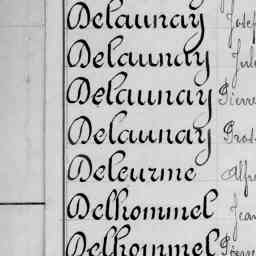 Delaunay Josef
Delaunay Jule
Delaunay Pierre
Delaunay Pros
Deleurme Alfre
Delhommel Jean
Delhommel Pierre